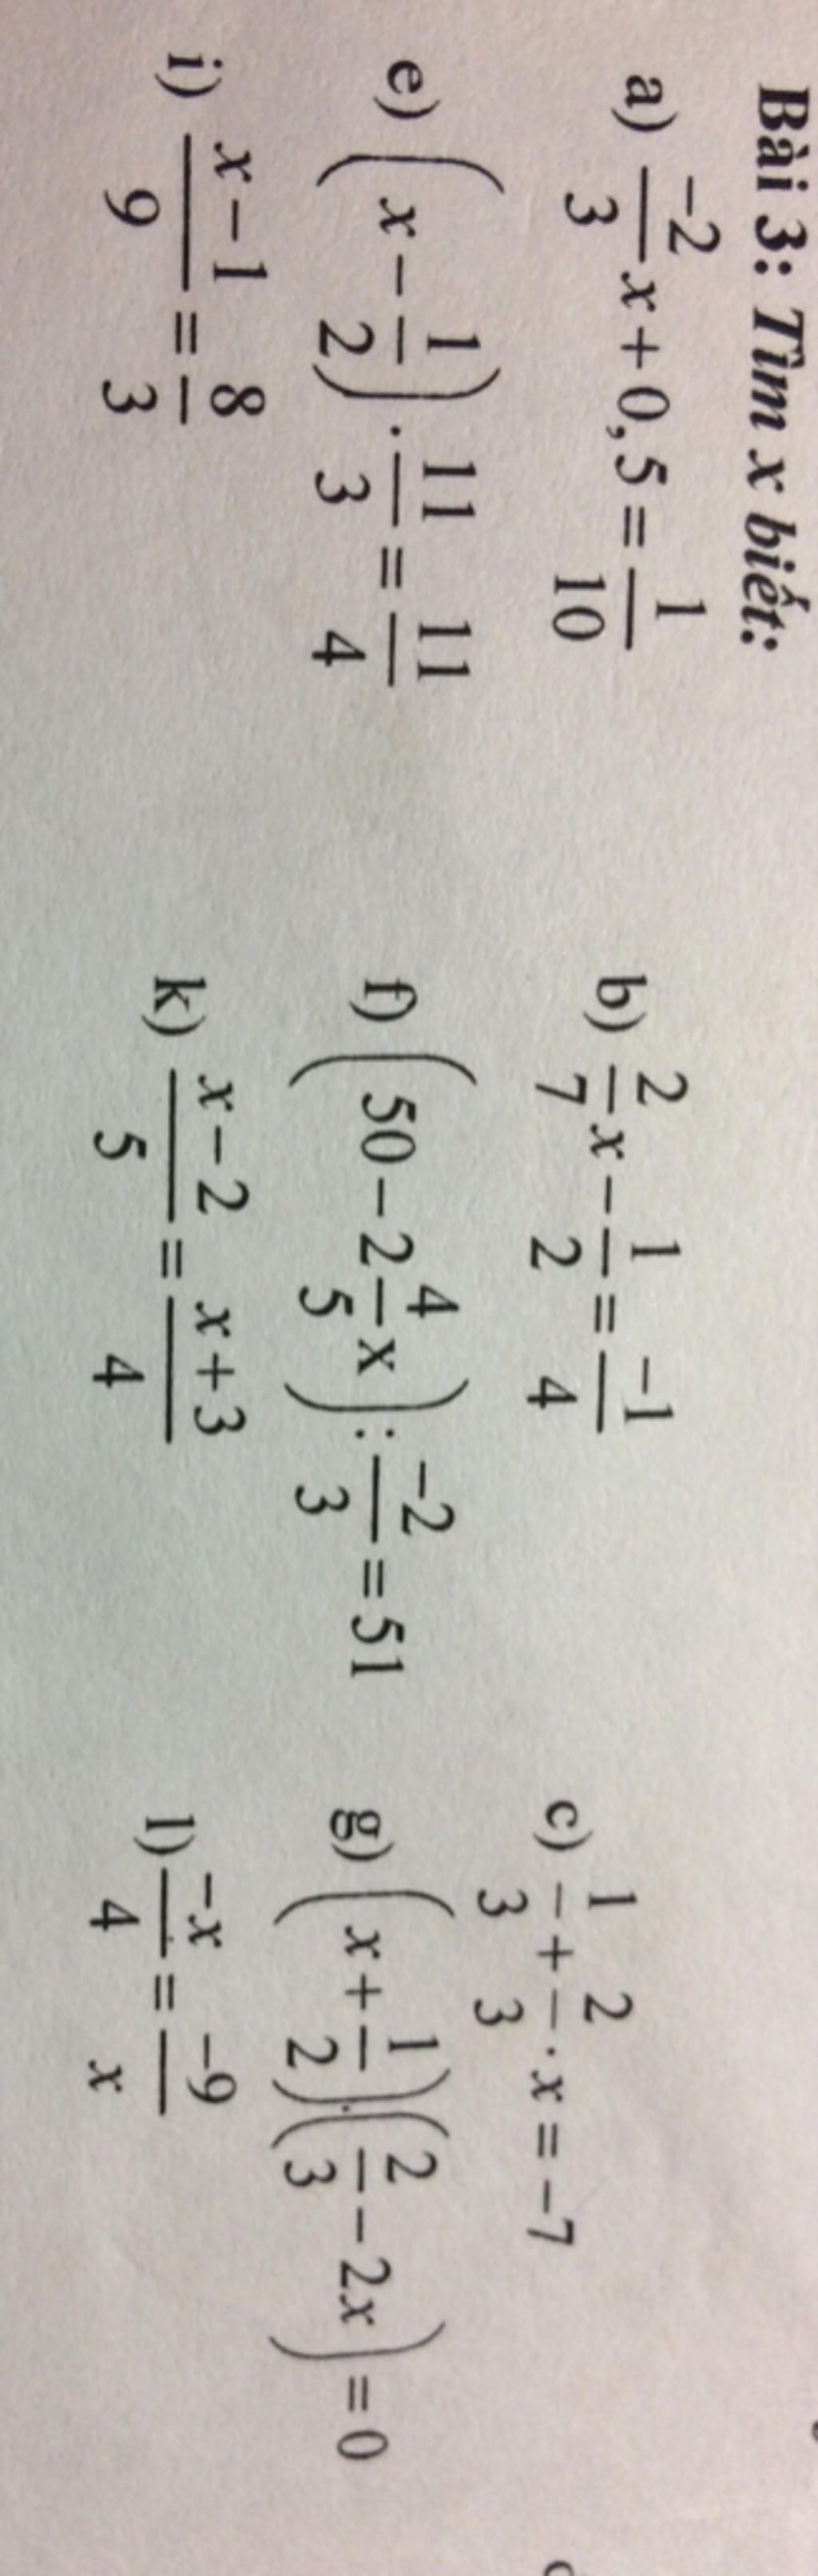 Bài 3: Tìm x biết:
a) $\frac{-2}{3}x+0,5=\frac{1}{10}$ b) $\frac{2}{7}x-\frac{1}{2}=\frac{-1}{4}$ c) $\frac{1}{3}+\frac{2}{3}\cdot x=-7$
e) $\left(x-\frac{1}{2}\right)\cdot\frac{11}{3}=\frac{11}{4}$ f) $\left(50-2\frac{4}{5}x\right):\frac{-2}{3}=51$ g) $\left(x+\frac{1}{2}\right)\cdot\left(\frac{2}{3}-2x\right)=0$
i) $\frac{x-1}{9}=\frac{8}{3}$ k) $\frac{x-2}{5}=\frac{x+3}{4}$ l) $\frac{-x}{4}=\frac{-9}{x}$